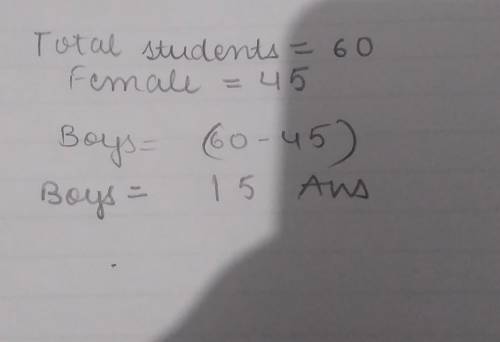 Total students = 60
Female = 45
Boys = (60 - 45)
Boys = 15 Ans